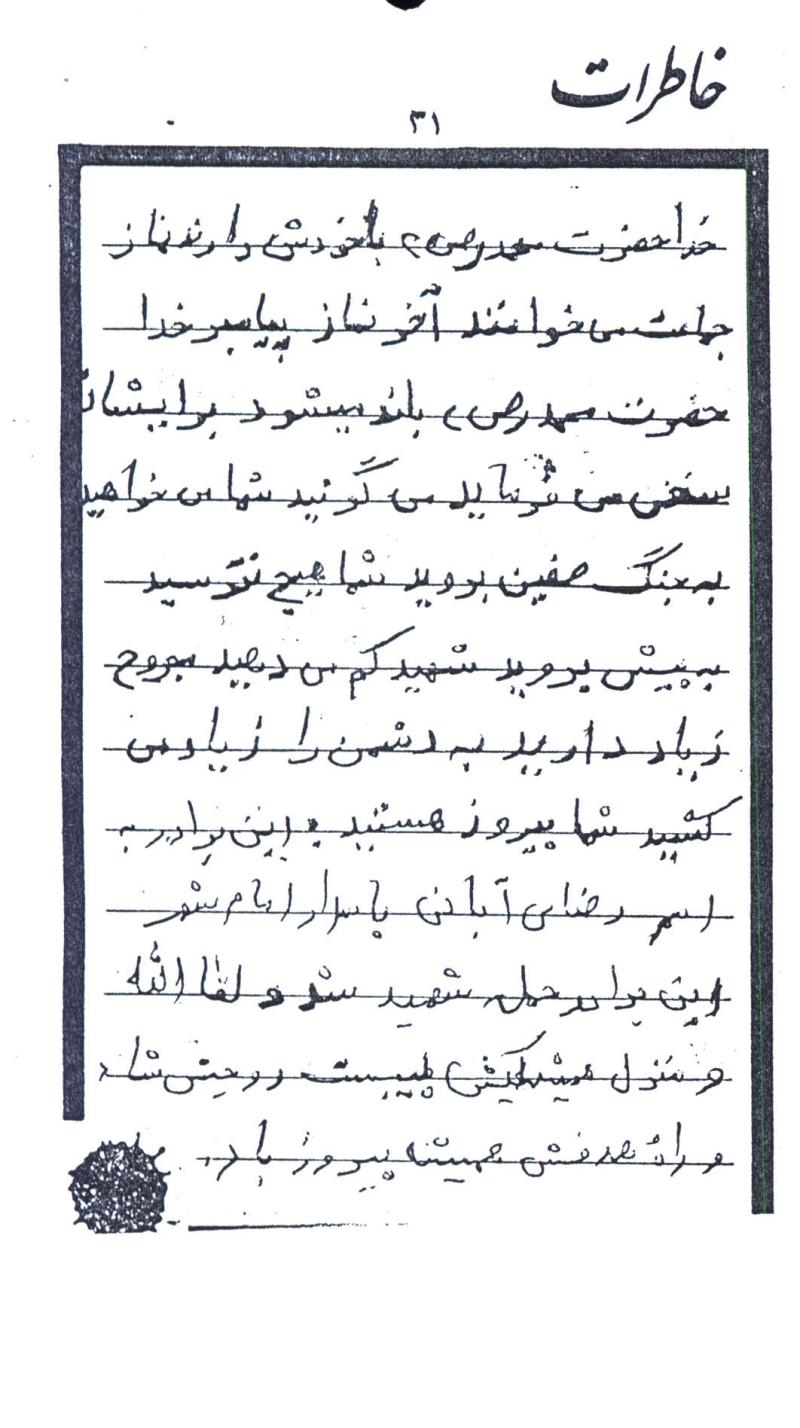 خاطرات
۳۱
خدا حضرت محمد (ص) با خودش دارند نماز
جماعت می خوانند آخر نماز پیامبر خدا
حضرت محمد (ص) بلند میشود برایشان
سخنی می فرماید می گوئید شما می خواهید
به جنگ صفین بروید شما هیچ نترسید
به پیش بروید شهید کم می دهید مجروح
زیاد دارید به دشمن را زیاد می
کشید شما پیروز هستید این برادر به
اسم رضای آبادی پاسدار امام شهر
این برادر حمله شهید شد و لقا الله
و منزل پیوست روحش شاد
و راه هدفش همیشه پیروز باد.